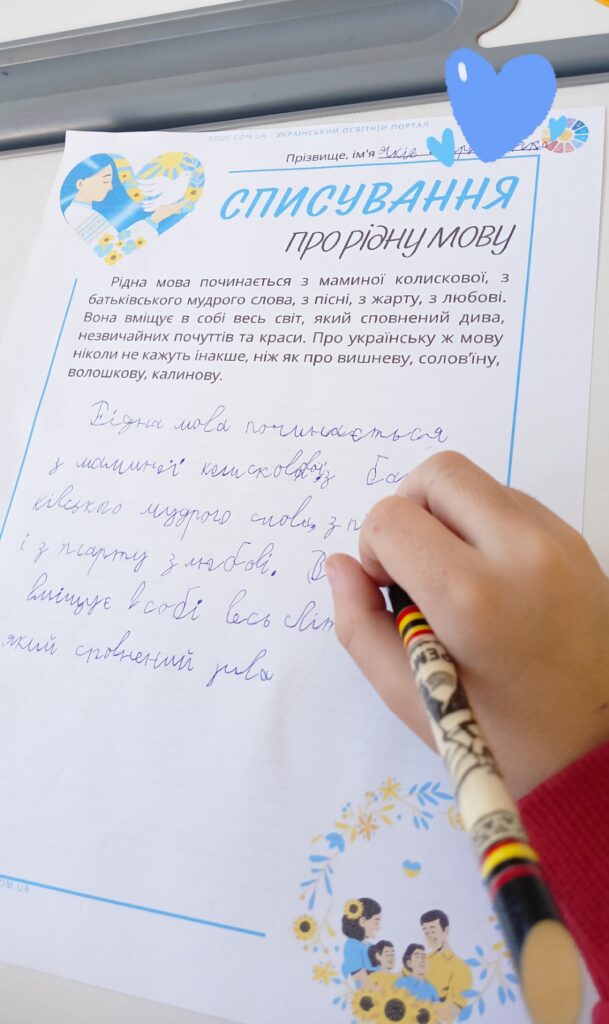 EDUC.COM.UA - УКРАЇНСЬКИЙ ОСВІТНІЙ ПОРТАЛ
Прізвище, ім'я
СПИСУВАННЯ
ПРО РІДНУ МОВУ
Рідна мова починається з маминої колискової, з
батьківського мудрого слова, з пісні, з жарту, з любові.
Вона вміщує в собі весь світ, який сповнений дива,
незвичайних почуттів та краси. Про українську ж мову
ніколи не кажуть інакше, ніж як про вишневу, солов'їну,
волошкову, калинову.
Рідна мова починається
з маминої
ківського мудрого слова, з
і з жарту з любові. В
вміщує в собі весь світ
який сповнений дива
OM.UA